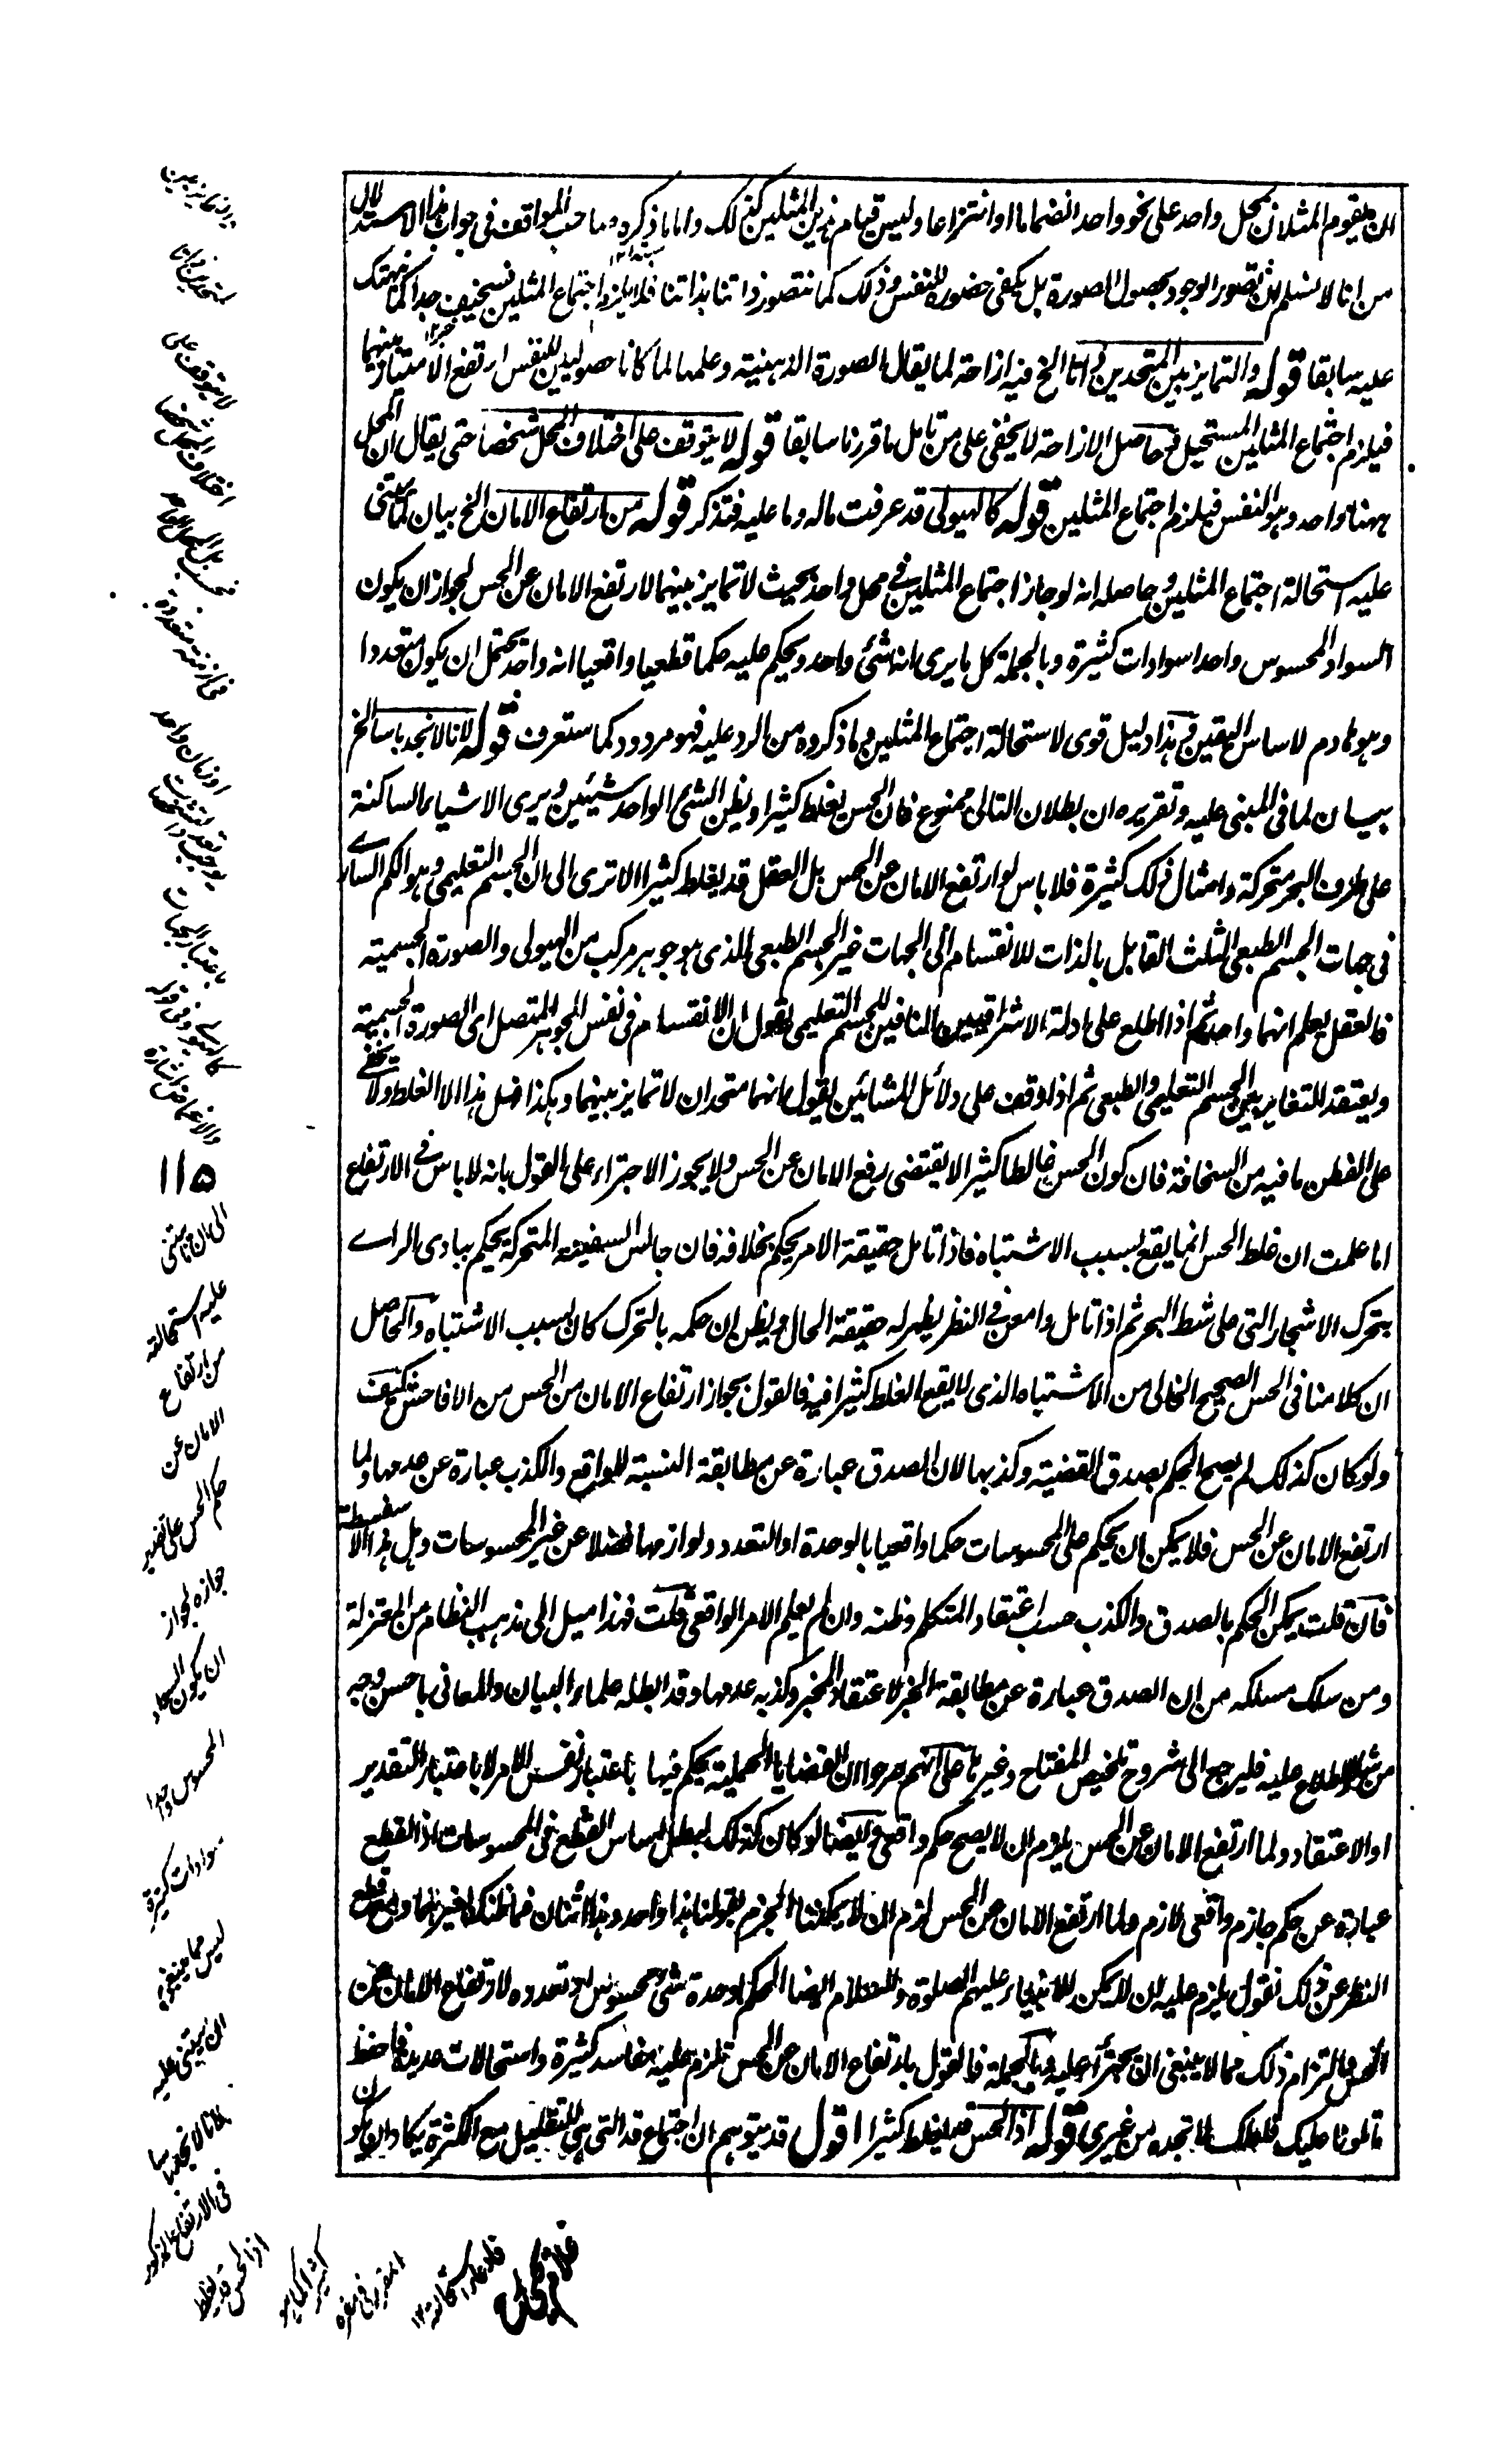 ان يقوم المثلان بمحل واحد على نحو واحد انضماما او انتزاعا وليس قيام هذين المثلين كذلك واما ما ذكره صاحب المواقف فى جواب هذا الاستدلال
من انا لا نسلم ان تصور الوجود بحصول الصورة بل يكفى حضوره للنفس وذلك كما نتصور ذاتنا بذاتنا فلا يلزم اجتماع المثلين فسخيف جدا كما نبهتك
عليه سابقا قوله والتمايز بين المتحدين فى انا الخ فيه ازاحة لما يقال الصورة الذهنية وعلمها لما كانا حصوليين للنفس ارتفع الامتياز بينهما
فيلزم اجتماع المثلين المستحيل وحاصل الازاحة لا يخفى على من تامل ما قررنا سابقا قوله لا يتوقف على اختلاف المحل شخصا حتى يقال ان المحل
ههنا واحد وهو النفس فيلزم اجتماع المثلين قوله كالهيولى قد عرفت ما له وما عليه فتذكر قوله من ارتفاع الامان الخ بيان لما يبتنى
عليه استحالة اجتماع المثلين وحاصله انه لو جاز اجتماع المثلين فى محل واحد بحيث لا تمايز بينهما لارتفع الامان عن الحس لجواز ان يكون
السواد المحسوس واحدا سوادات كثيرة وبالجملة كل ما يرى انه شئ واحد ويحكم عليه حكما قطعيا واقعيا انه واحد يحتمل ان يكون متعددا
وهو هادم لاساس اليقين فهذا دليل قوى لاستحالة اجتماع المثلين وما ذكروه من الرد عليه فهو مردود كما ستعرف قوله لانا لا نجد باسا الخ
بيان لما فى المبنى عليه وتقريره ان بطلان التالى ممنوع فان الحس يغلط كثيرا ويظن الشئ الواحد شيئين ويرى الاشياء الساكنة
على طرف البحر متحركة وامثال ذلك كثيرة فلا باس لو ارتفع الامان عن الحس بل العقل قد يغلط كثيرا الا ترى الى ان الجسم التعليمى وهو الكم السارى
فى جهات الجسم الطبعى الثلث القابل بالذات للانقسام فى الجهات غير الجسم الطبعى الذى هو جوهر مركب من الهيولى والصورة الجسمية
فالعقل يعلم انهما واحد ثم اذا اطلع على ادلة الاشراقيين المنافين للجسم التعليمى يقول ان الانقسام فى نفس الجوهر المتصل اى الصورة الجسمية
ويعتقد المتغاير بين الجسم التعليمى والطبعى ثم اذا وقف على دلائل المشائين يقول انهما متحدان لا تمايز بينهما وهكذا فهل هذا الا الغلط ولا يخفى
على الفطن ما فيه من السخافة فان كون الحس غالطا كثيرا لا يقتضى رفع الامان عن الحس ولا يجوز الاجتراء على القول بانه لا باس فى الارتفاع
اما علمت ان غلط الحس انما يقع بسبب الاشتباه فاذا تامل حقيقة الامر يحكم بخلافه فان جالس السفينة المتحركة يحكم ببادى الراے
بتحرك الاشجار التى على شط البحر ثم اذا تامل وامعن فى النظر يظهر له حقيقة الحال ويظن ان حكمه بالتحرك كان بسبب الاشتباه والحاصل
ان كلامنا فى الحس الصحيح الخالى من الاشتباه الذى لا يقع الغلط كثيرا فيه فالقول بجواز ارتفاع الامان من الحس من الافاحش كيف
ولو كان كذلك لم يصح الحكم بصدق القضية وكذبها لان الصدق عبارة عن مطابقة النسبة للواقع والكذب عبارة عن عدمها ولما
ارتفع الامان عن الحس فلا يمكن ان يحكم على المحسوسات حكما واقعيا بالوحدة او التعدد ولوازمها فضلا عن غير المحسوسات وهل هذا الا سفسطة
فان قلت يمكن الحكم بالصدق والكذب حسب اعتقاد المتكلم وظنه وان لم يعلم الامر الواقعى قلت فهذا ميل الى مذهب النظام من المعتزلة
ومن سلك مسلكه من ان الصدق عبارة عن مطابقة الخبر لاعتقاد المخبر وكذبه عدمها وقد ابطله علماء البيان والمعانى باحسن وجه
من شاء الاطلاع عليه فليرجع الى شروح تلخيص المفتاح وغيرها على انهم صرحوا ان القضايا الحملية يحكم فيها باعتبار نفس الامر لا باعتبار التقدير
او الاعتقاد ولما ارتفع الامان عن الحس يلزم ان لا يصح حكم واقعى وايضا لو كان كذلك لبطل اساس القطع فى المحسوسات اذ القطع
عبارة عن حكم جازم واقعى لازم ولما ارتفع الامان عن الحس لزم ان لا يمكننا الجزم بقولنا هذا واحد وهذا اثنان فما ظنك لغيرهما ومع قطع
النظر عن ذلك نقول يلزم عليه ان لا يمكن للانبياء عليهم الصلوة والسلام ايضا الحكم بوحدة شئ محسوس او تعدده لارتفاع الامان عن
الحس والتزام ذلك مما لا ينبغى ان يجترأ عليه وبالجملة فالقول بارتفاع الامان عن الحس تلزم عليه مفاسد كثيرة واستحالات عديدة فاحفظ
ما تلونا عليك فلعلك لا تجده من غيرى قوله اذ الحس قد يغلط كثيرا اقول قد يتوهم ان اجتماع قد التى هى للتقليل مع الكثرة يكاد ان يكون
لا يتوقف على
اختلاف المحل شخصا
او زمان واحد
باعتبار الجهات
١١٥
الى ان ما يبتنى
عليه استحالته
من ارتفاع
الامان عن
حكم الحس على تقدير
جوازه لجواز
ان يكون السواد
المحسوس واحدا
سوادات كثيرة
ليس مما ينبغى
ان يبتنى عليه
لانا لا نجد باسا
فى الارتفاع المذكور
اذ الحس قد يغلط
كثيرا كما هو
المقرر فى مقره